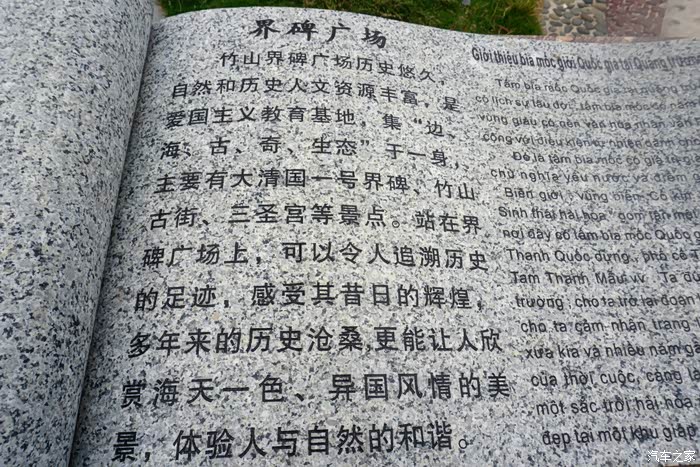 界碑广场
竹山界碑广场历史悠久，
自然和历史人文资源丰富，是
爱国主义教育基地，集“边、
海、古、奇、生态”于一身，
主要有大清国一号界碑、竹山
古街、三圣宫等景点。站在界
碑广场上，可以令人追溯历史
的足迹，感受其昔日的辉煌，
多年来的历史沧桑,更能让人欣
赏海天一色、异国风情的美
景，体验人与自然的和谐。
Giới thiệu bia mốc giới Quốc gia tại Quảng trường
Tấm bia mốc Quốc gia
có lịch sử lâu đời, tấm bia mốc có
vùng giàu có nền văn hóa nhân văn
cộng với điều kiện tự nhiên
Đó là tấm bia mốc có giá trị
chủ nghĩa yêu nước và điểm
Biên giới, vùng biển, Cổ kính
Sinh thái hài hòa" gom tần một
nơi đây có tấm bia mốc Quốc g
Thanh Quốc dựng, phố cổ T
Tam Thánh Mẫu vv. Ta đ
trường, cho ta trở lại đoạn
cho ta cảm nhận trang
xưa kia và nhiều năm ga
của thời cuộc, càng là
một sắc trời hài hòa
đẹp tại một khu giáp
汽车之家